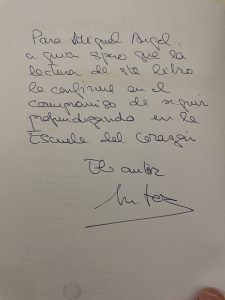 Para Miguel Angel,
a quien espero que la
lectura de este libro
le confirme en el
compromiso de seguir
profundizando en la
Escuela del Corazón
El autor